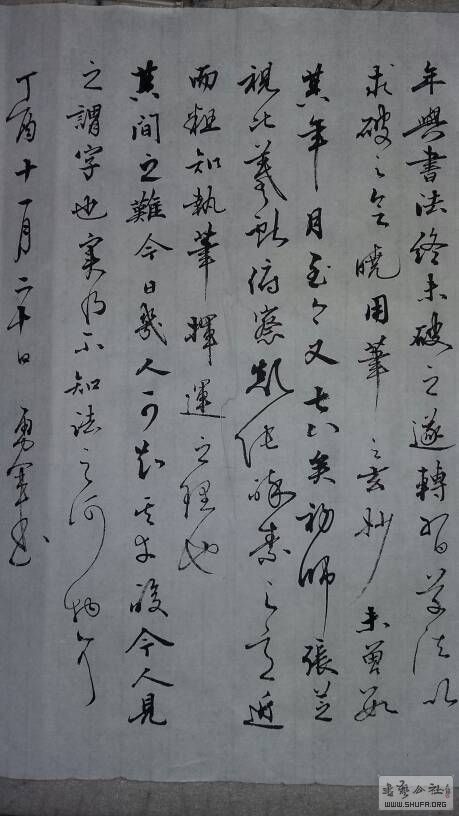 年與書法終未破之遂轉習草法以
求破之今曉用筆之玄妙未曾數
其年月至今又七八矣初師張芝
視比羲獻俯察顛張醉素之意近
而粗知執筆揮運之理也
其間之難今日幾人可知 今人見
之謂字也實乃不知法之何物
丁酉十一月二十日 勇軍書
書藝公社
WWW.SHUFA.ORG